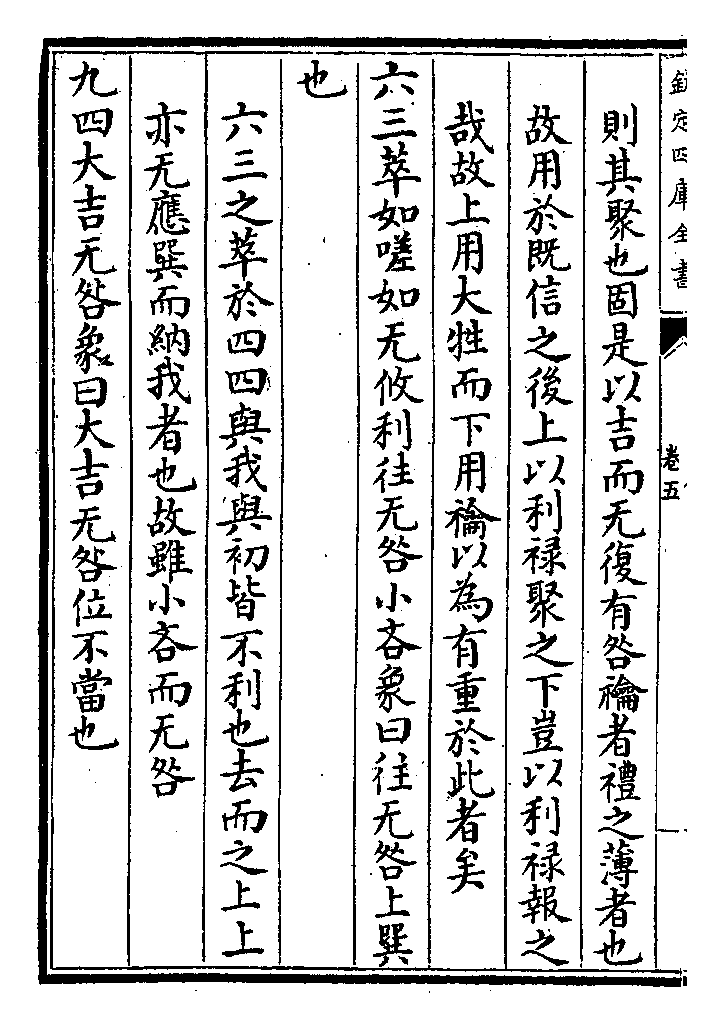 欽定四庫全書
卷五
則其聚也固是以吉而无復有咎禴者禮之薄者也
故用於既信之後上以利禄聚之下豈以利禄報之
哉故上用大牲而下用禴以為有重於此者矣
六三萃如嗟如无攸利往无咎小吝象曰往无咎上巽
也
六三之萃於四四與我與初皆不利也去而之上上
亦无應巽而納我者也故雖小吝而无咎
九四大吉无咎象曰大吉无咎位不當也